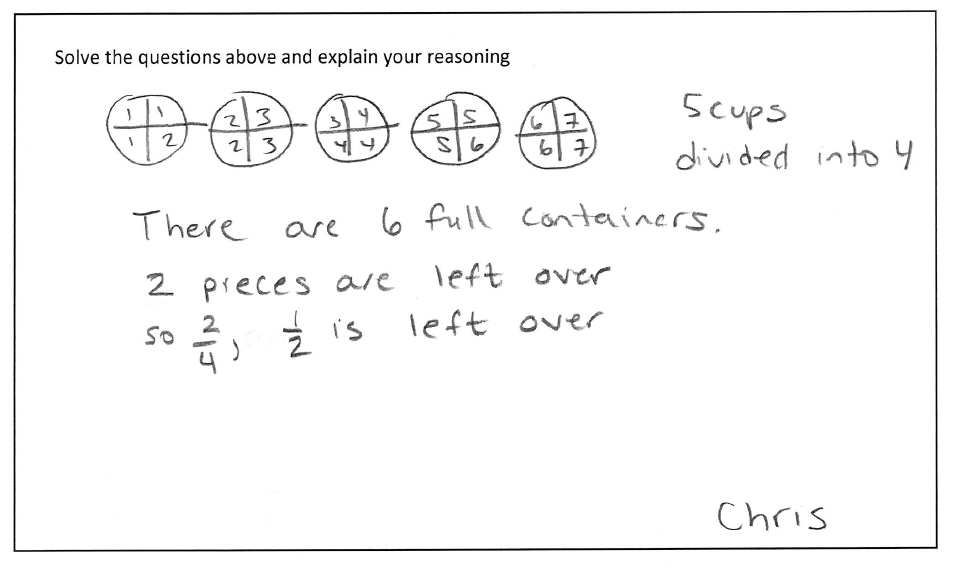 Solve the questions above and explain your reasoning
1 1 2 3 3 4 5 5 6 7
1 2 2 3 4 4 5 6 6 7
5 cups
divided into 4
There are 6 full containers.
2 pieces are left over
so 2/4, 1/2 is left over
Chris